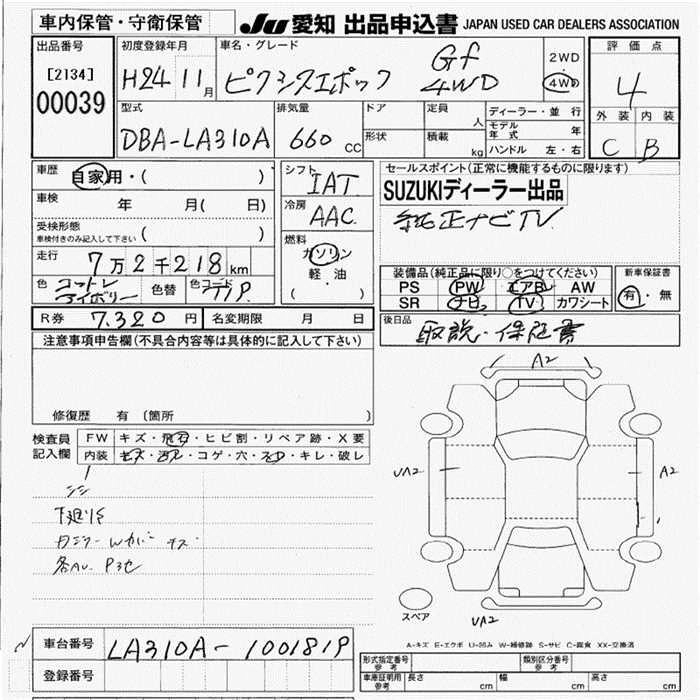 車内保管・守衛保管
JU 愛知 出品申込書 JAPAN USED CAR DEALERS ASSOCIATION
出品番号
[2134]
00039
初度登録年月
H24 11月
車名・グレード
ピクシスエポック Gf 4WD
2WD
4WD
評価点
4
外装 内装
C B
型式
DBA-LA310A
排気量
660 CC
ドア
形状
定員 人
積載 kg
ディーラー・並行
モデル年式 年
ハンドル 左・右
車歴 自家用・( )
車検 年 月( 日)
受検形態
車検付きのみ記入して下さい ( )
走行 7万2千218km
色 コットンアイボリー 色替 色コード T19
シフト
IAT
冷房
AAC
燃料
ガソリン
軽・油
( )
セールスポイント(正常に機能するものに限ります)
SUZUKIディーラー出品
純正ナビTV
装備品(純正品に限り○をつけてください)
PS PW エアB AW
SR ナビ TV カワシート
新車保証書
有・無
R券 7,320円 名変期限 月 日
後日品
取説・保証書
注意事項申告欄(不具合内容等は具体的に記入して下さい)
修復歴 有 (箇所 )
検査員記入欄
FW キズ・飛石・ヒビ割・リペア跡・X要
内装 キズ・汚レ・コゲ・穴・スロ・キレ・破レ
下廻り
A2
UA2
A2
UA2
スペア
A-キズ E-エクボ U-凹み W-補修跡 S-サビ C-腐食 XX-交換済
車台番号 LA310A-1001819
登録番号
形式指定番号 参考
類別区分番号 参考
車庫証明用 参考 長さ cm 幅 cm 高さ cm